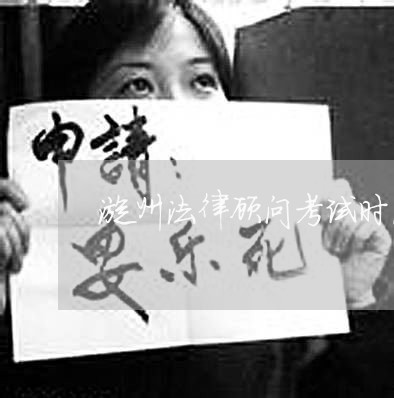 申請：
漩州法律顾问考试时
安乐死